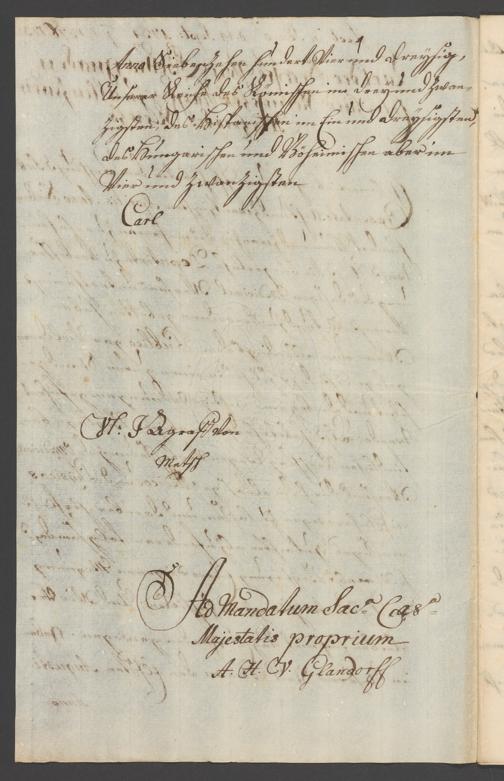 Anno Siebenzehen hundert Vier und Dreyßig,
Unserer Reiche des Römischen im Drey und Zwan-
zigsten, des Hispanischen im Ein und Dreyßigsten,
des Hungarischen und Böheimischen aber im
Vier und Zwanzigsten
Carl
Vt: J A graf von
Metsch
Ad Mandatum Sac.ae Caes.ae
Majestatis proprium
A. H. V. Glandorff